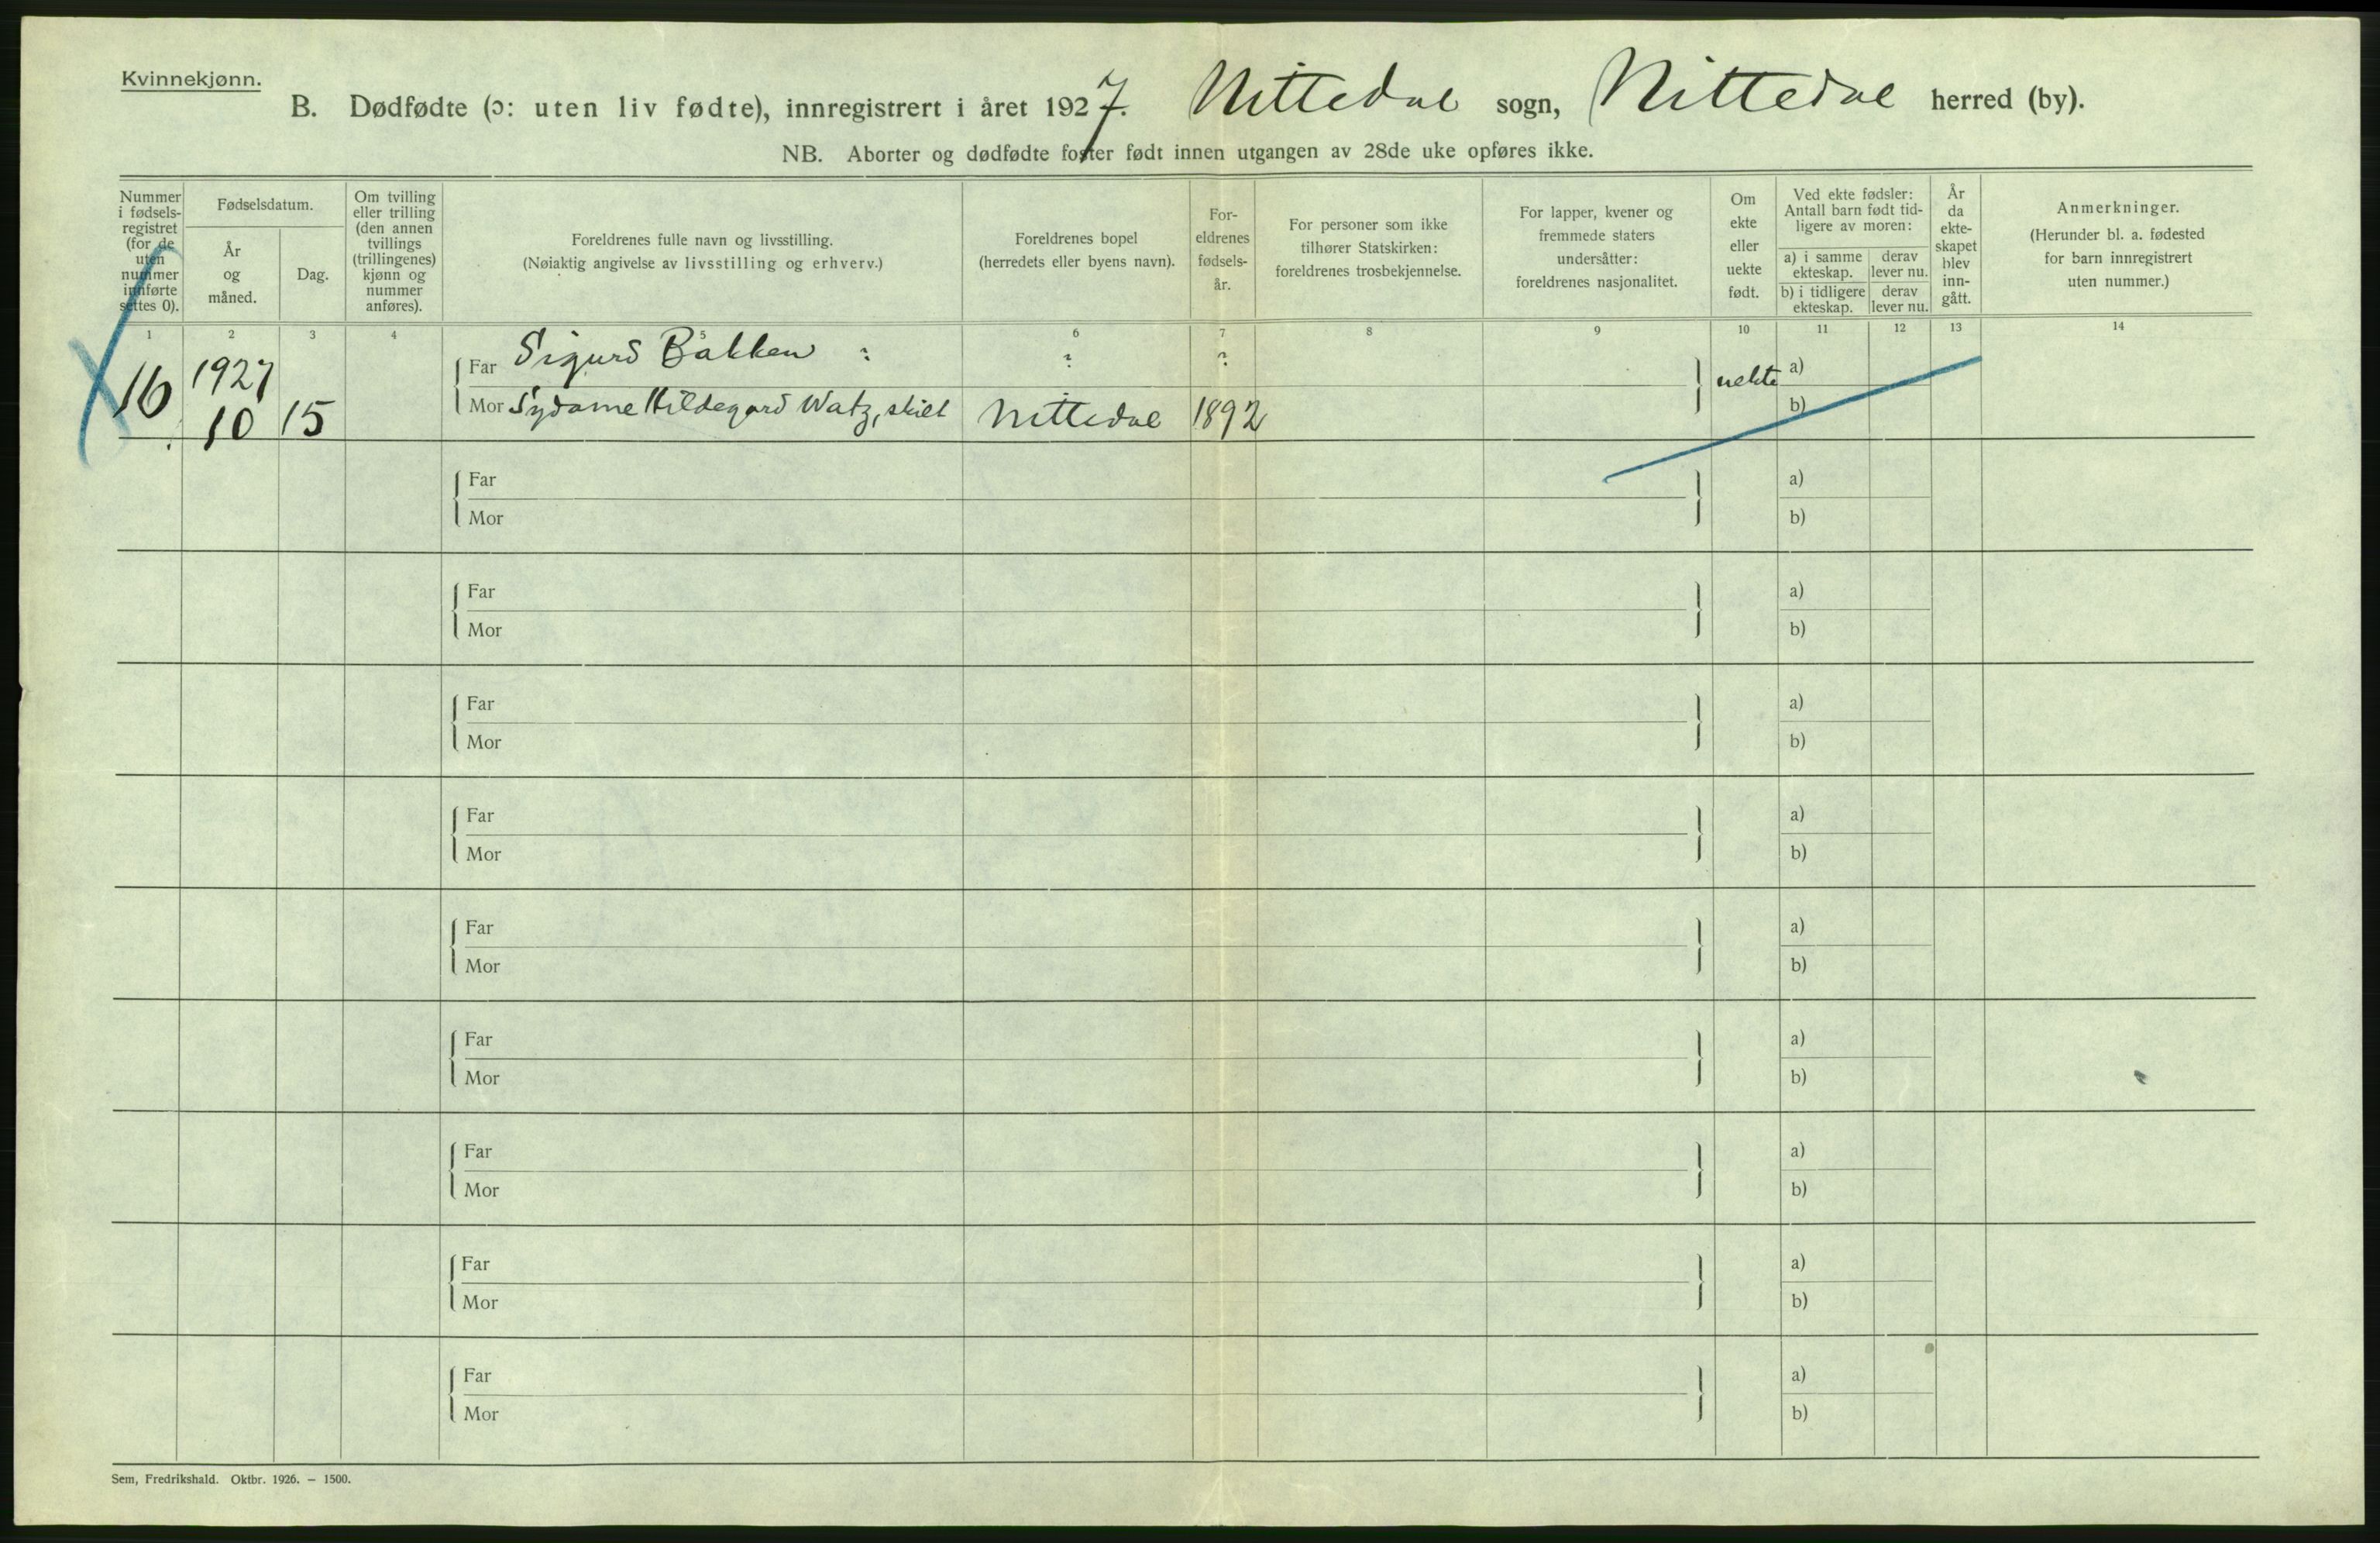 Kvinnekjønn.
B. Dødfødte (ɔ: uten liv fødte), innregistrert i året 1927. Nittedal sogn, Nittedal herred (by).
NB. Aborter og dødfødte foster født innen utgangen av 28de uke opføres ikke.
Nummer
i fødsels-
registret
(for de
uten
nummer
innførte
settes 0).
Fødselsdatum.
År
og
måned.
Dag.
Om tvilling
eller trilling
(den annen
tvillings
(trillingenes)
kjønn og
nummer
anføres).
Foreldrenes fulle navn og livsstilling.
(Nøiaktig angivelse av livsstilling og erhverv.)
Foreldrenes bopel
(herredets eller byens navn).
For-
eldrenes
fødsels-
år.
For personer som ikke
tilhører Statskirken:
foreldrenes trosbekjennelse.
For lapper, kvener og
fremmede staters
undersåtter:
foreldrenes nasjonalitet.
Om
ekte
eller
uekte
født.
Ved ekte fødsler:
Antall barn født tid-
ligere av moren:
a) i samme
ekteskap.
derav
lever nu.
b) i tidligere
ekteskap.
derav
lever nu.
År
da
ekte-
skapet
blev
inn-
gått.
Anmerkninger.
(Herunder bl. a. fødested
for barn innregistrert
uten nummer.)
1 2 3 4 5 6 7 8 9 10 11 12 13 14
16 1927 Far Sigurd Bakken ? ? ? uekte a)
10 15 Mor Hildegard Watz, skilt Nittedal 1892 b)
Far a)
Mor b)
Far a)
Mor b)
Far a)
Mor b)
Far a)
Mor b)
Far a)
Mor b)
Far a)
Mor b)
Far a)
Mor b)
Far a)
Mor b)
Far a)
Mor b)
Sem, Fredrikshald. Oktbr. 1926. — 1500.